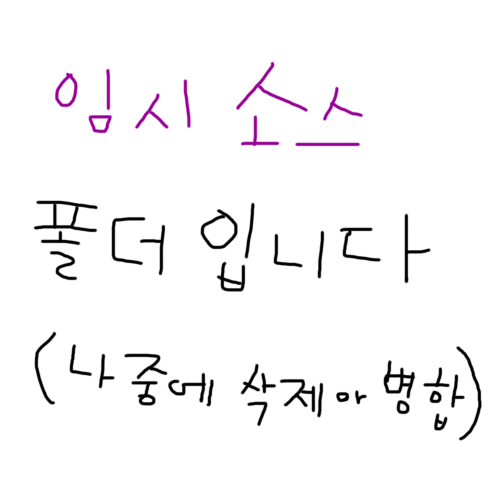 임시 소스
폴더 입니다
(나중에 삭제아 병합)